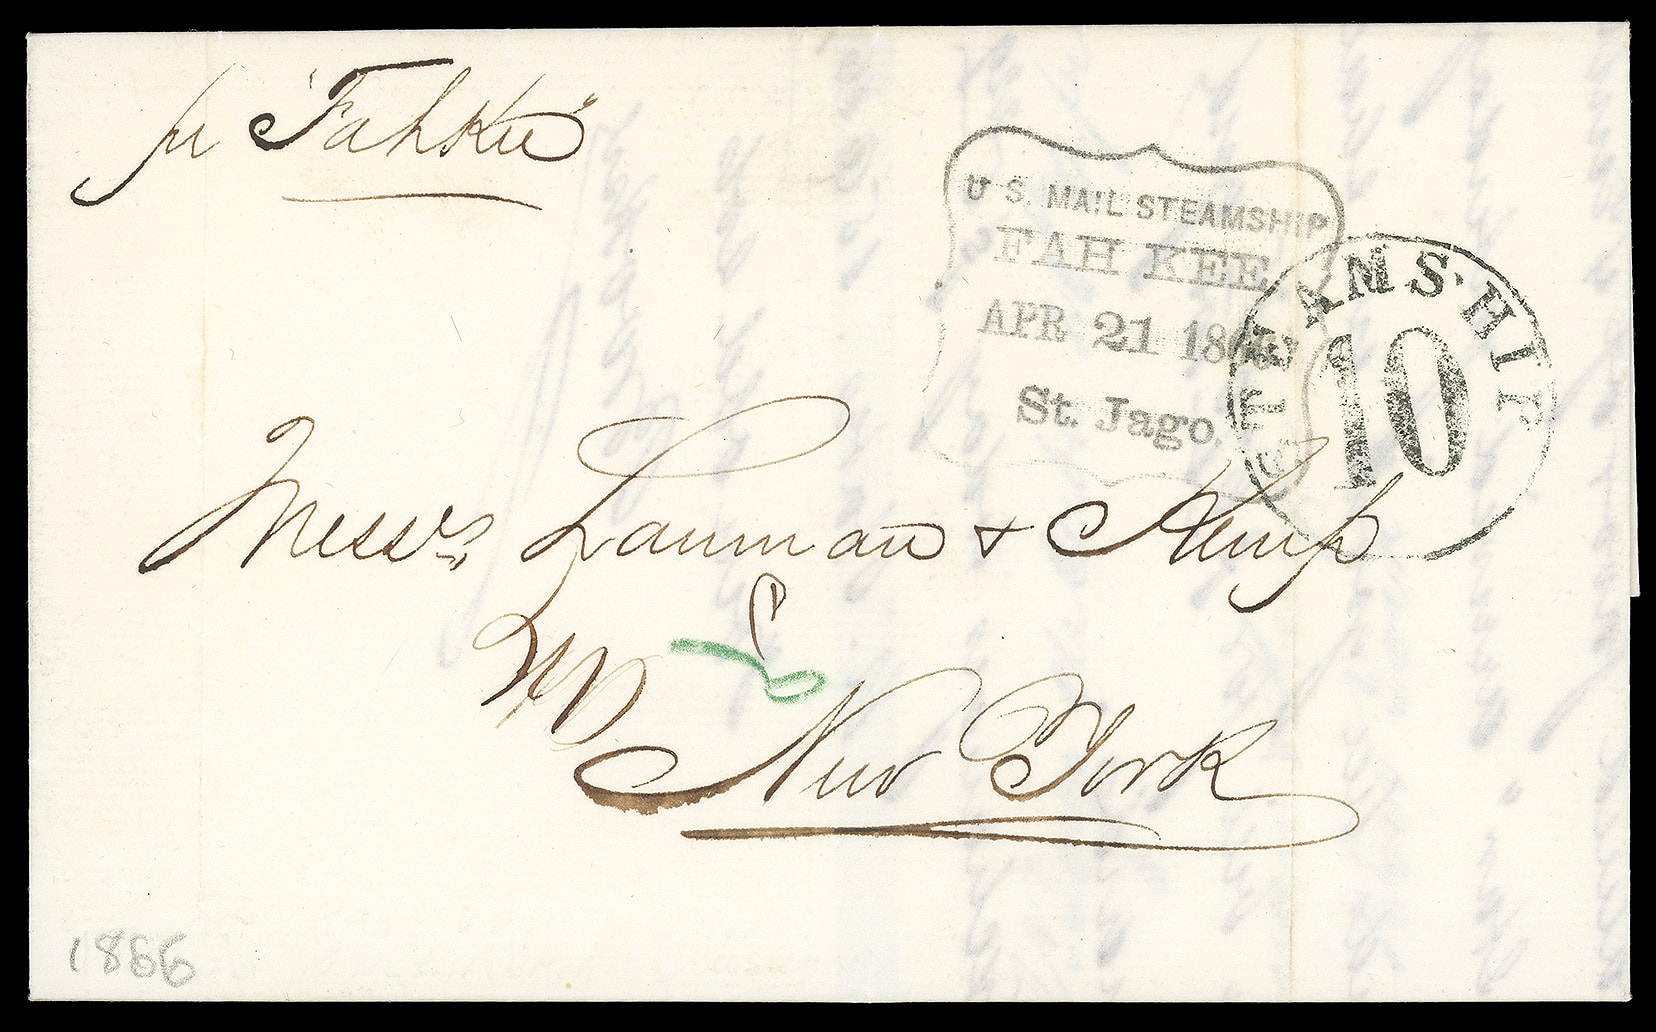 pr "Fahkee"
U.S. MAIL STEAMSHIP
FAH KEE
APR 21 1866
St. Jago.
STEAMSHIP
10
Messrs. Lanman & Kemp
New York
1866